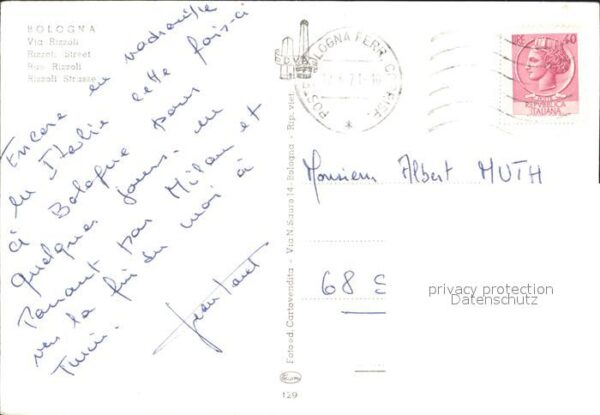 BOLOGNA
Via Rizzoli
Rizzoli Street
Rue Rizzoli
Rizzoli Strasse
Encore en vadrouille
en Italie cette fois-ci
à Bologne pour
quelques jours, en
Passant par Milan et
vers la fin du mois à
Turin.
BOLOGNA FERR. CORR.
POSTE
REPVBBLICA
ITALIANA
40
Monsieur Albert MUTH
68 S
privacy protection
Datenschutz
Fotoed. Cartovendita - Via N. Sauro 14 - Bologna - Rip. viet.
129